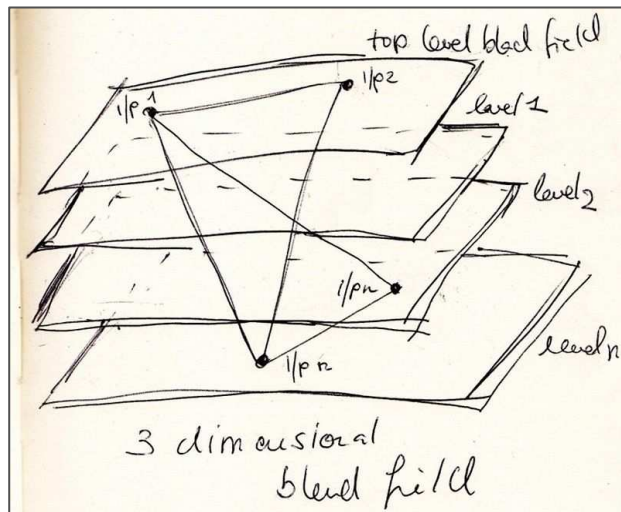 top level bled field
i/p 1
i/p 2
level 1
level 2
i/p n
i/p n
level n
3 dimensional
blend field